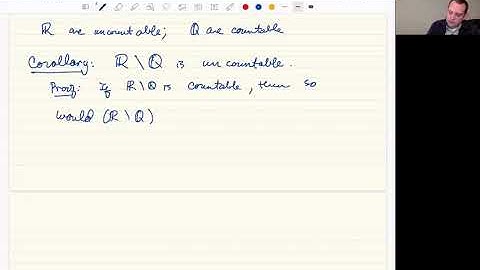 ℝ are uncountable; ℚ are countable
Corollary: ℝ \ ℚ is uncountable.
Proof: If ℝ \ ℚ is countable, then so
would (ℝ \ ℚ)